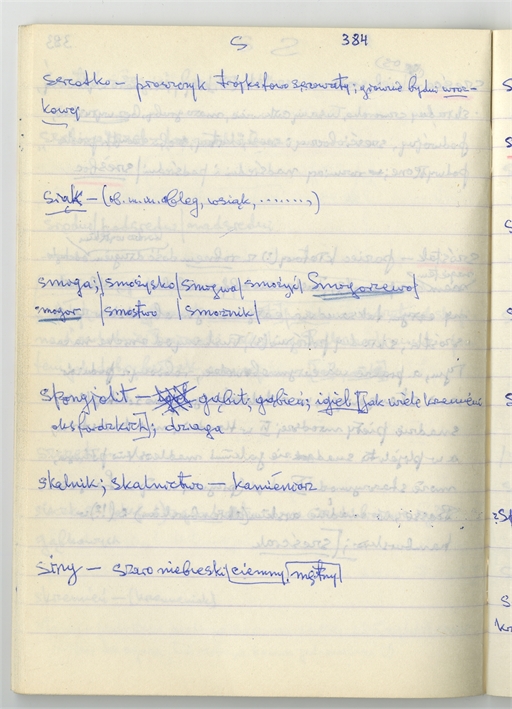 S 384
sercatko – proszczyk trójkątowo ; głównie bydu wosz-
kowęg
siąk – (ob. m.m. obleg, wsiąk, ........)
smoga; | smożysko | smogwa | smożyć | Smogorzewo |
-mogor | smostwo | smoźnik |
Spongiolit – gąbit, gąbień; igieł [jak wiele krzemieni
oksfordzkich]; dziaga
skalnik; skalnictwo – kamieniarz
siny – szaro niebieski [ciemny, mętny]